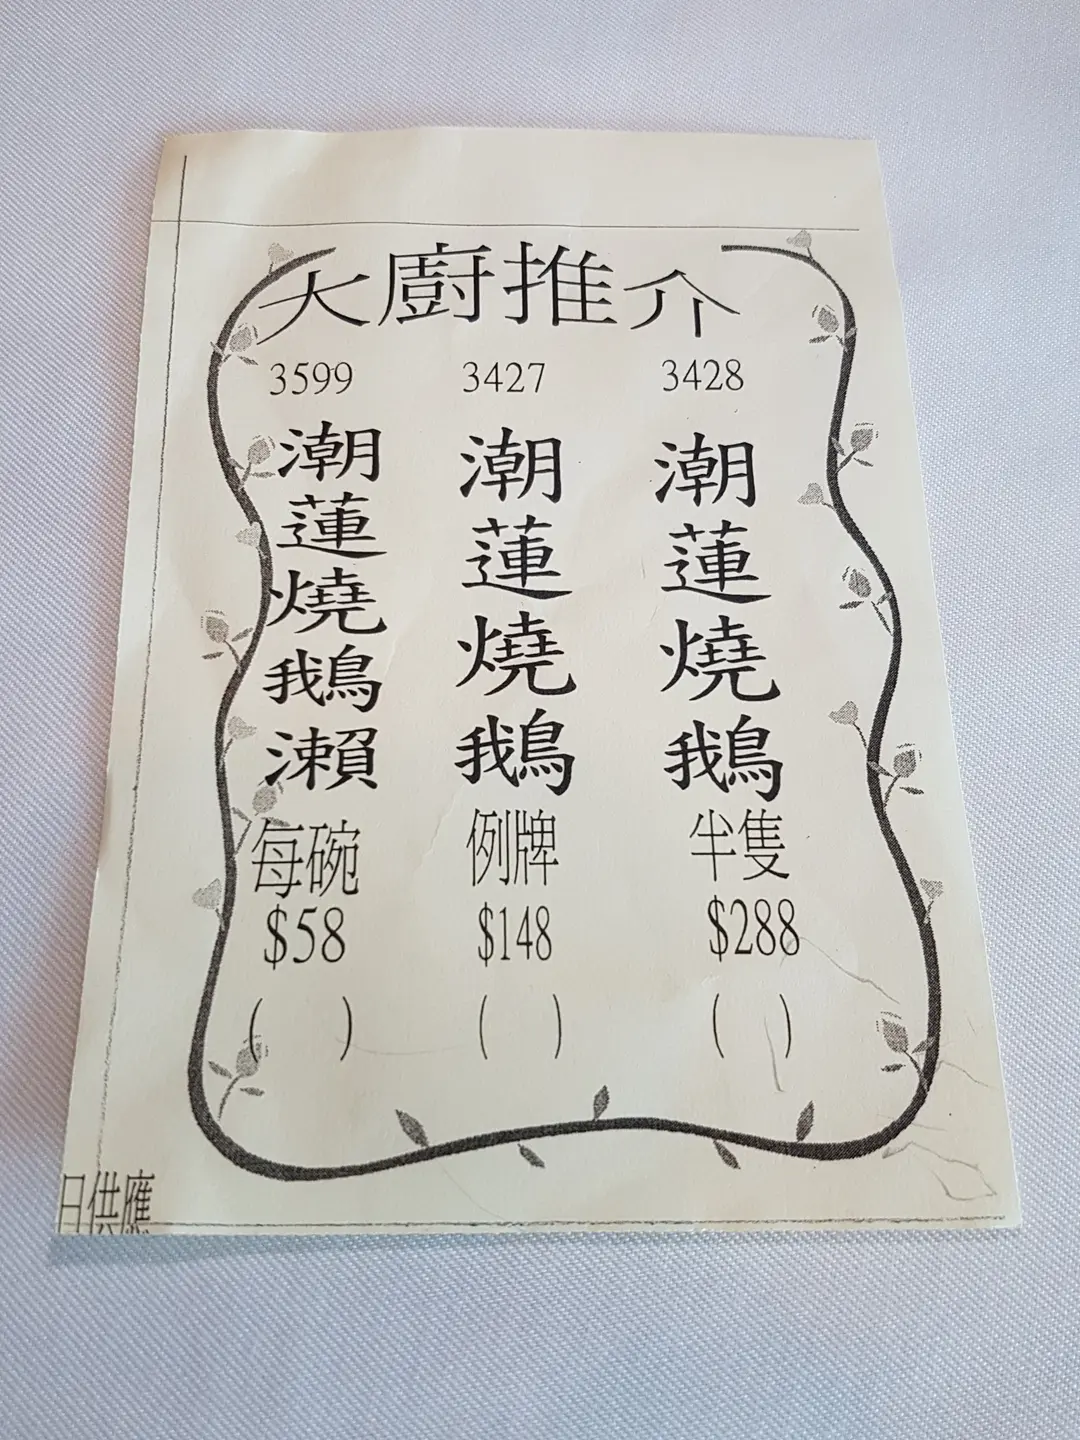 大廚推介
3599 3427 3428
潮蓮燒鵝瀨
每碗
$58
( )
潮蓮燒鵝
例牌
$148
( )
潮蓮燒鵝
半隻
$288
( )
日供應